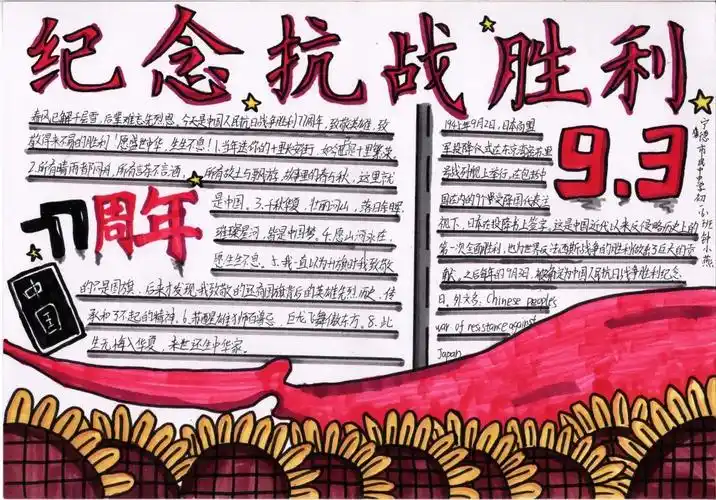 纪念抗战胜利
春风已解千层雪，后辈难忘先烈恩，今天是中国人民抗日战争胜利77周年，致敬英雄，致
敬得来不易的胜利！愿盛世中华，生生不息！1.当年送你的十里长安街，如今已是十里繁荣。
2.所有晴雨都同舟，所有悲欢不言酒，所有故土与朝游，故事里的春与秋，这里就
是中国。3.千秋华夏，壮丽河山，落日余晖，
璀璨星河，皆是中国梦。4.愿山河永在，
愿生生不息。5.我一直以为升旗时我致敬
的不是国旗，后来才发现，我致敬的还有国旗背后的英雄先烈，历史，传
承和了不起的精神。6.苏醒雄狮多尊忌，巨龙飞舞傲东方。8.此
生无悔入华夏，来世还生中华家。
77周年
中国
1945年9月2日，日本向盟
军投降仪式在东京湾密苏里
号战列舰上举行，在包括中
国在内的9个受降国代表注
视下，日本在投降书上签字。这是中国近代以来反侵略历史上的
第一次全面胜利，也为世界反法西斯战争的胜利做出了巨大的贡
献。之后每年的9月3日，被确定为中国人民抗日战争胜利纪念
日，外文名，Chinese people's
war of resistance against
Japan
9.3
宁德市民中中学初一小班钟小燕